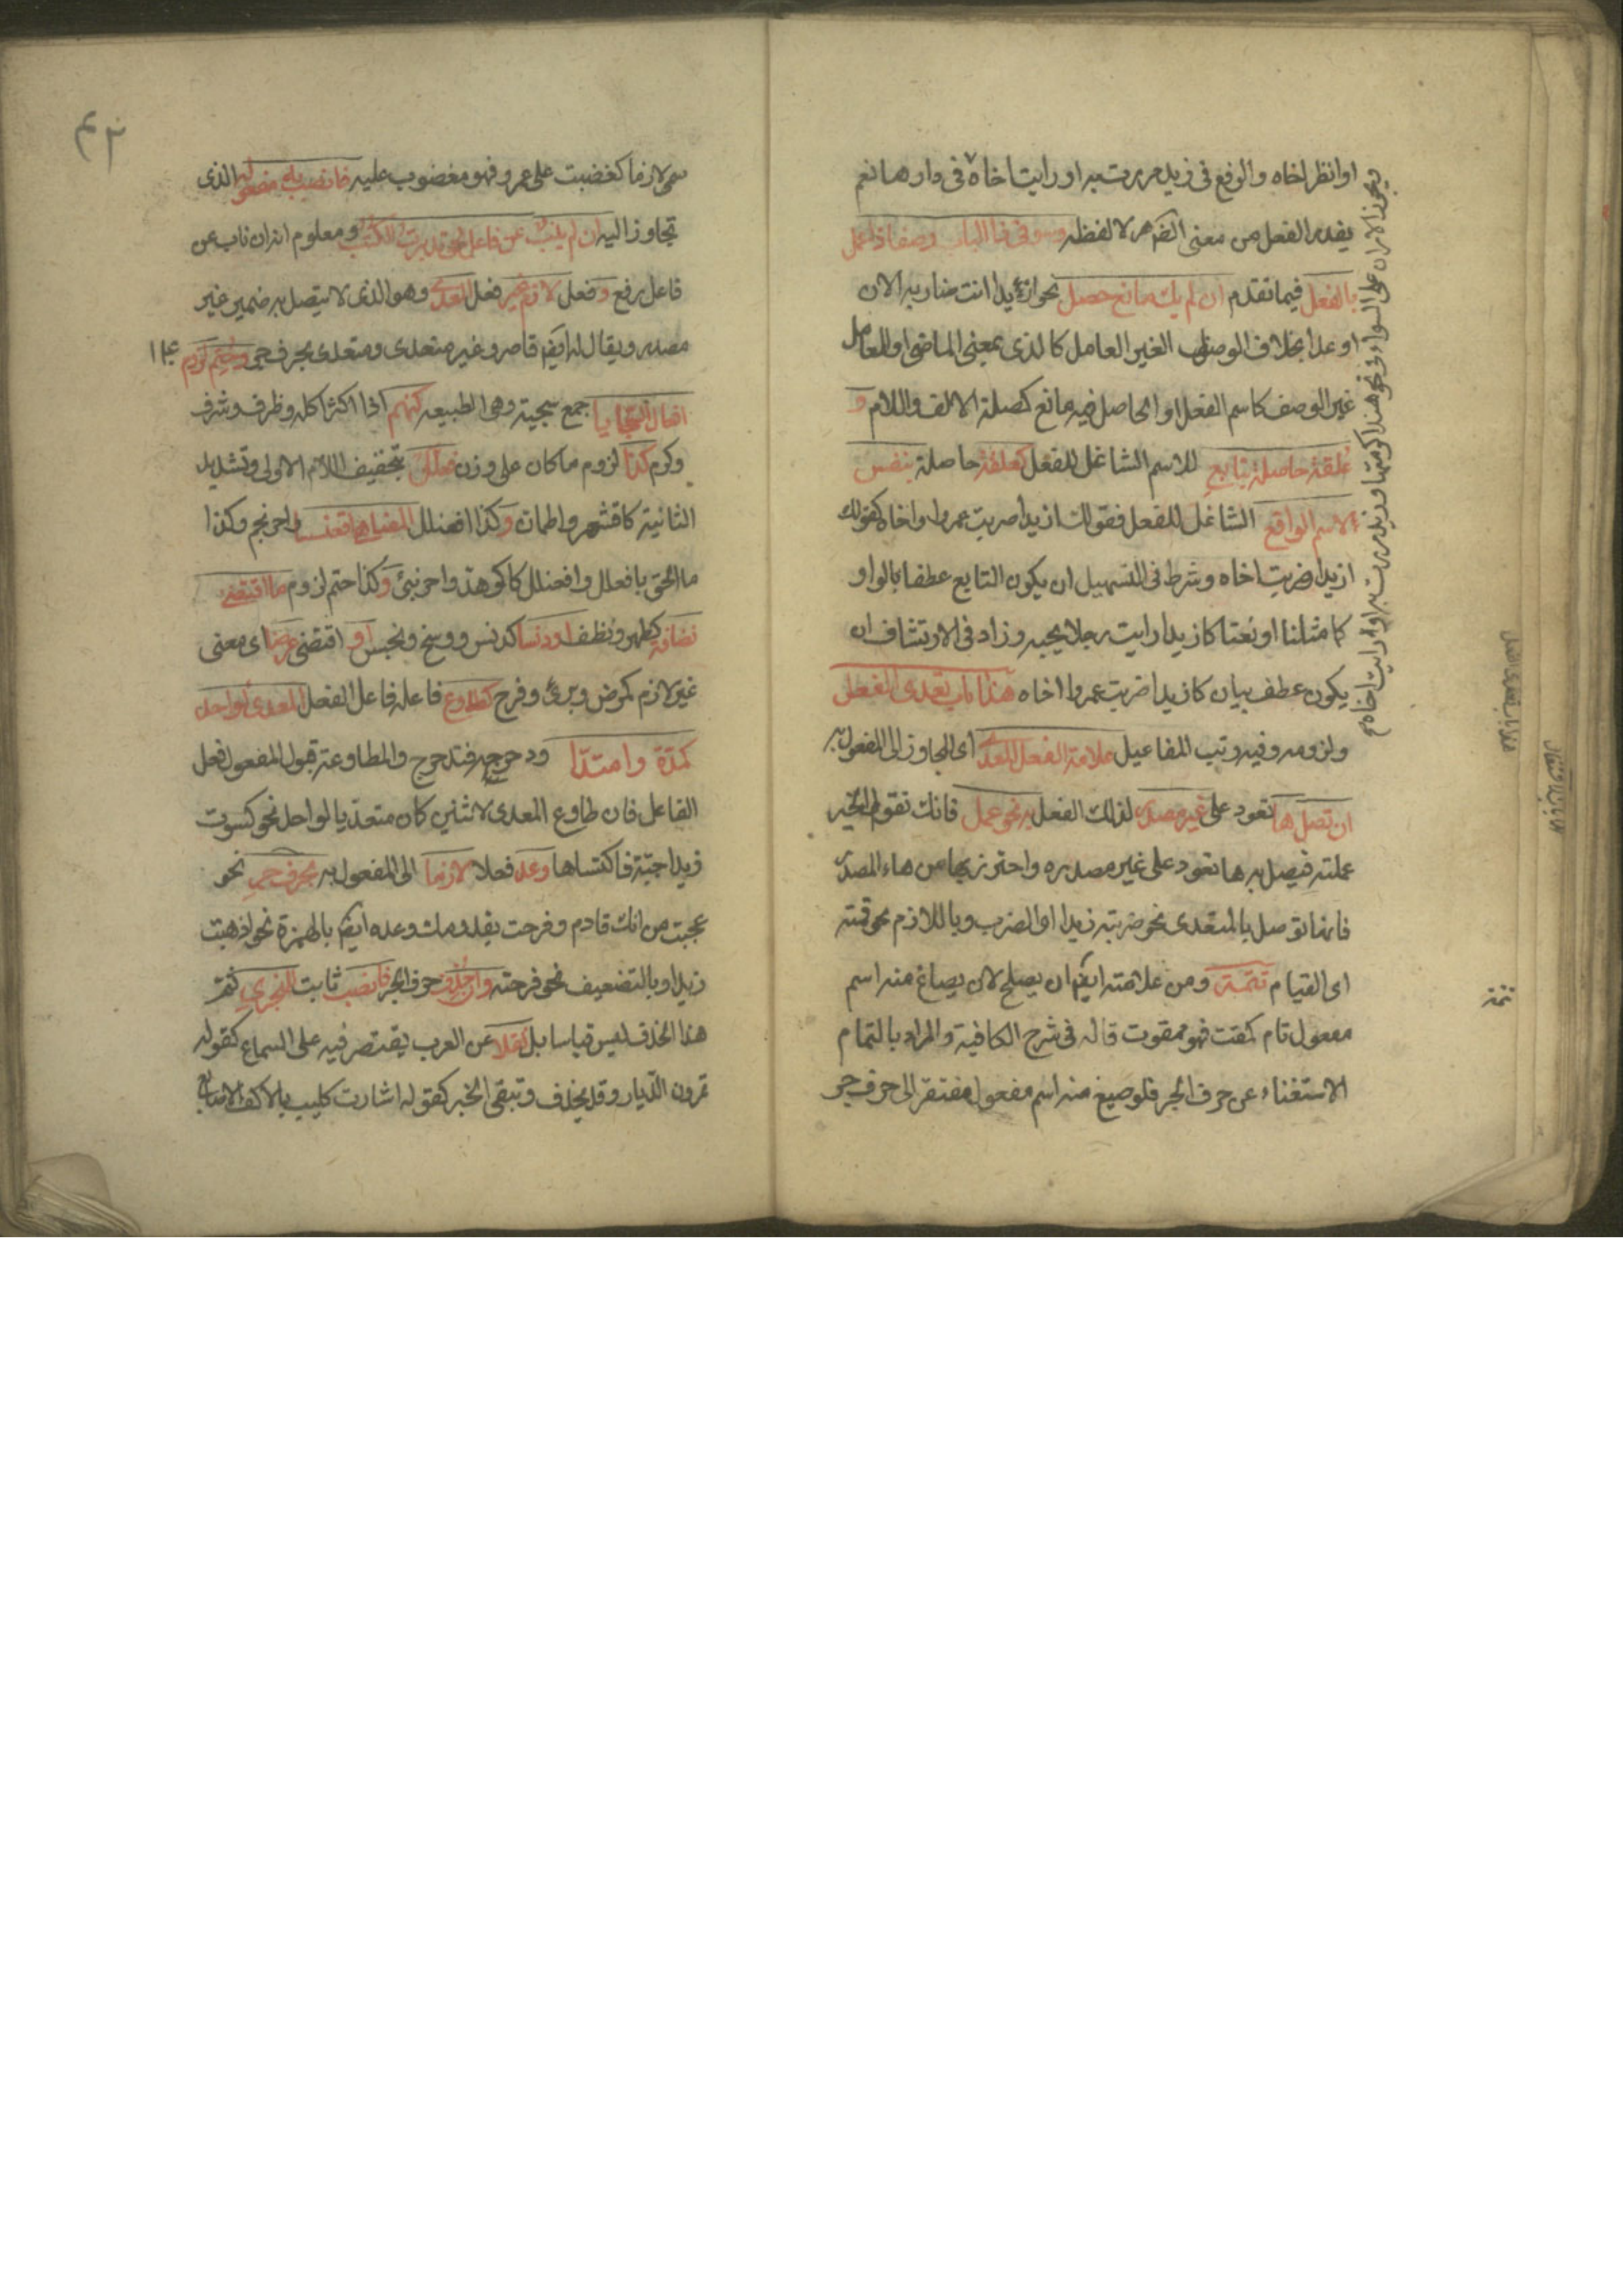 اوانظر اخاه والرفع فى زيد مررت به او رايت اخاه فى دارها نعم
يقدر الفعل من معنى الظهر لا لفظه وسو فى ذا الباب وصفا ذا عمل
بالفعل فيما تقدم ان لم يك مانع حصل نحو ازيدا انت ضاربه الان
او غدا بخلاف الوصف الغير العامل كالذى بمعنى الماضى او العامل
غير الوصف كاسم الفعل او الحاصل فيه مانع كصلة الالف واللام و
علقة حاصلة بتابع للاسم الشاغل للفعل كعلقة حاصلة بنفس
الاسم الواقع الشاغل للفعل فقولك ازيدا ضربت عمروا واخاه كقولك
ازيدا ضربت اخاه وشرط فى التسهيل ان يكون التابع عطفا بالواو
كما مثلنا او نعتا كازيدا رايت رجلا يحبه وزاد فى الارتشاف ان
يكون عطف بيان كازيدا ضربت عمروا اخاه هذا باب تعدى الفعل
ولزومه وفيه رتب المفاعيل علامة الفعل المعدى اى المجاوز الى المفعول به
ان تصل ها تعود على غير مصدر لذلك الفعل به نحو عمل فانك تقول الخير
عملته فيصل به ها تعود على غير مصدره واحترز بها من هاء المصدر
فانها توصل بالمتعدى نحو ضربته زيدا اى الضرب وباللازم نحو قمته
اى القيام تتمة ومن علامته ايضا ان يصلح لان يصاغ منه اسم
مفعول تام كمقت فهو ممقوت قاله فى شرح الكافية والمراد بالتمام
الاستغناء عن حرف الجر فلو صيغ منه اسم مفعول مفتقر الى حرف جر
ويجوز الامران على السواء فى نحو هند اكرمتها وزيد مررت به او رايت اخاه
هذا باب تعدى الفعل
تتمة
سمى لازما كغضبت على عمرو فهو مغضوب عليه فانصب به مفعوله الذى
تجاوز اليه ان لم ينب عن فاعل نحو تدبرت الكتب ومعلوم انه ان ناب عن
فاعل رفع وفعل لازم غير فعل المعدى وهو الذى لا يتصل به ضمير غير
مصدر ويقال له ايضا قاصر وغير متعدى ومتعدى بحرف جر وحتم لزوم
افعال السجايا جمع سجية وهى الطبيعة كنهم اذا اكثر اكله وظرف وشرف
وكرم كذا لزوم ما كان على وزن افعلل بتخفيف اللام الاولى وتشديد
الثانية كاقشعر واطمان وكذا افعنلل المضاهى اقعنسسا واحرنجم وكذا
ما الحق بافعلل وافعنلل كاكوهد واحرنبى وكذا حتم لزوم ما اقتضى
نظافة كطهر ونظف او دنسا كدنس ووسخ ونجس او اقتضى عرضا اى معنى
غير لازم كمرض وبرئ وفرح كطاوع فاعله فاعل الفعل المعدى لواحد
كمده وامتدا ودحرجته فتدحرج والمطاوعة قبول المفعول فعل
الفاعل فان طاوع المعدى لاثنين كان متعديا لواحد نحو كسوت
زيدا جبة فاكتساها وعد فعلا لازما الى المفعول به بحرف جر نحو
عجبت من انك قادم وفرحت بقدومك وعده ايضا بالهمزة نحو اذهبت
زيدا وبالتضعيف نحو فرحته وان حذف حرف الجر فانصب ثابت للمنجر ثم
هذا الحذف ليس قياسا بل نقلا عن العرب يقتصر فيه على السماع كقوله
تمرون الديار وقد يحذف وتبقى الجر كقوله اشارت كليب بالاكف الاصابع